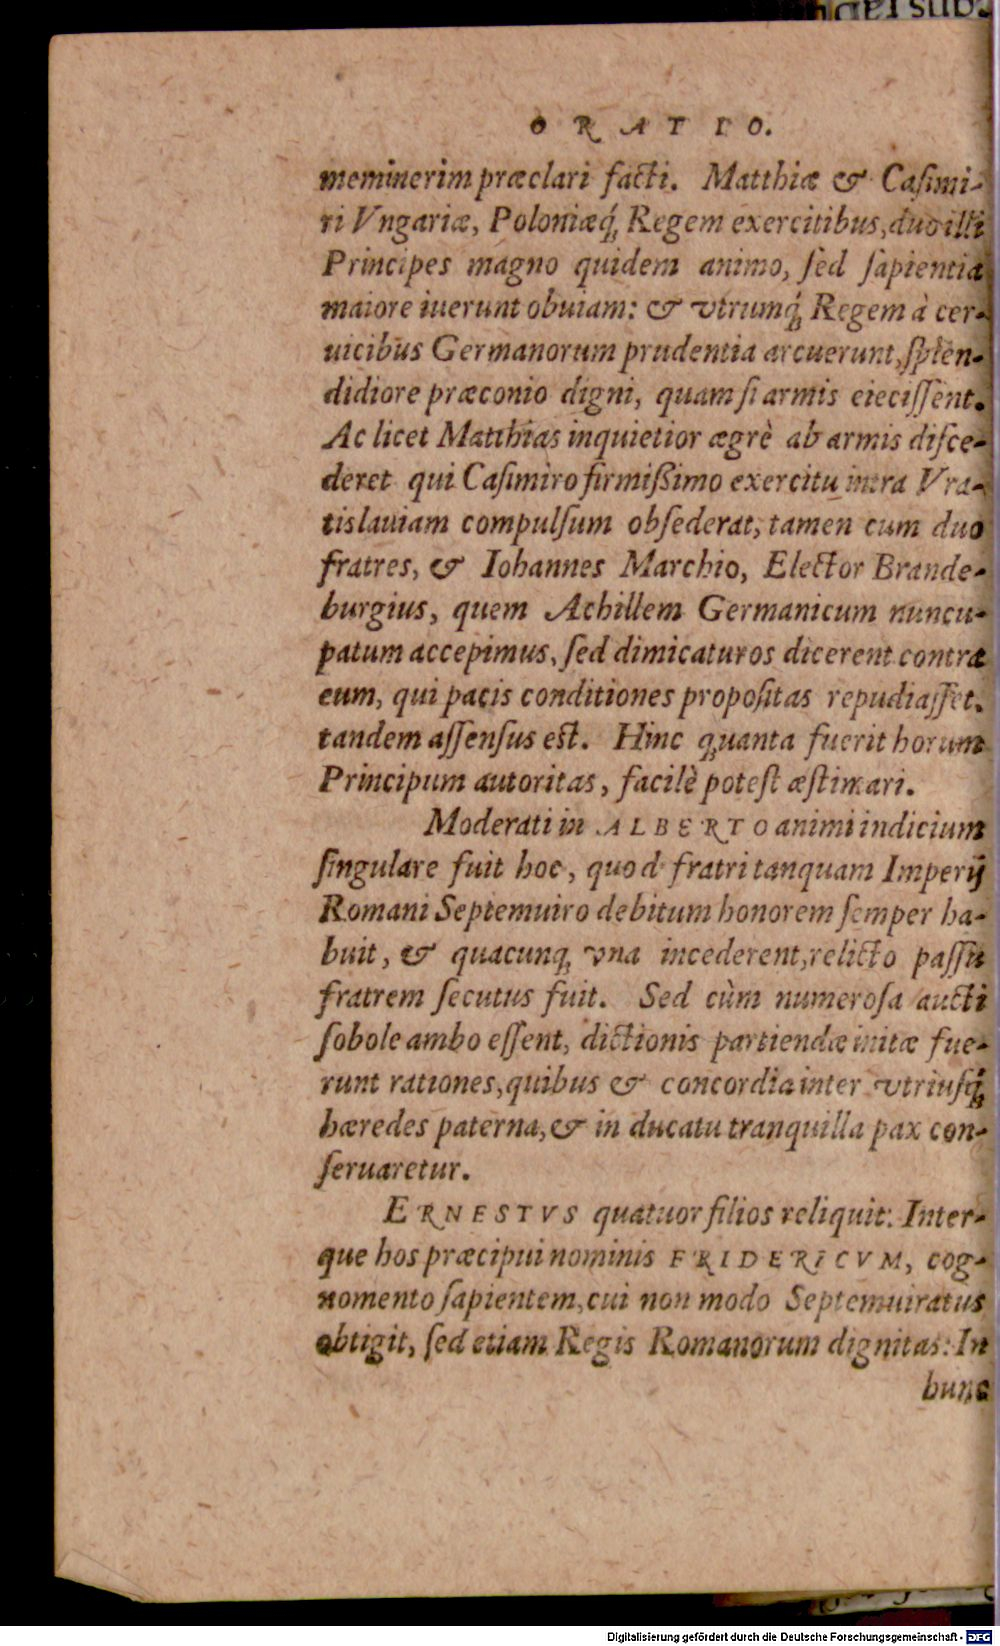 ORATIO.
meminerim præclari facti. Matthiæ & Casimi-
ri Vngariæ, Poloniæq́; Regem exercitibus, duo illi
Principes magno quidem animo, sed sapientia
maiore iuerunt obuiam: & vtrumq́; Regem à cer-
uicibus Germanorum prudentia arcuerunt, splen-
didiore præconio digni, quam si armis eiecissent.
Ac licet Matthias inquietior ægrè ab armis disce-
deret qui Casimiro firmißimo exercitu intra Vra-
tislauiam compulsum obsederat, tamen cum duo
fratres, & Iohannes Marchio, Elector Brande-
burgius, quem Achillem Germanicum nuncu-
patum accepimus, sed dimicaturos dicerent contra
eum, qui pacis conditiones propositas repudiasset.
tandem assensus est. Hinc quanta fuerit horum
Principum autoritas, facilè potest æstimari.
Moderati in ALBERTO animi indicium
singulare fuit hoc, quod fratri tanquam Imperij
Romani Septemuiro debitum honorem semper ha-
buit, & quacunq; vna incederent, relicto passu
fratrem secutus fuit. Sed cùm numerosa aucti
sobole ambo essent, dictionis partiendæ initæ fue-
runt rationes, quibus & concordia inter vtriusq́;
hæredes paterna, & in ducatu tranquilla pax con-
seruaretur.
ERNESTVS quatuor filios reliquit: Inter-
que hos præcipui nominis FRIDERICVM, cog-
nomento sapientem, cui non modo Septemuiratus
obtigit, sed etiam Regis Romanorum dignitas: In
hunc
Digitalisierung gefördert durch die Deutsche Forschungsgemeinschaft - DFG